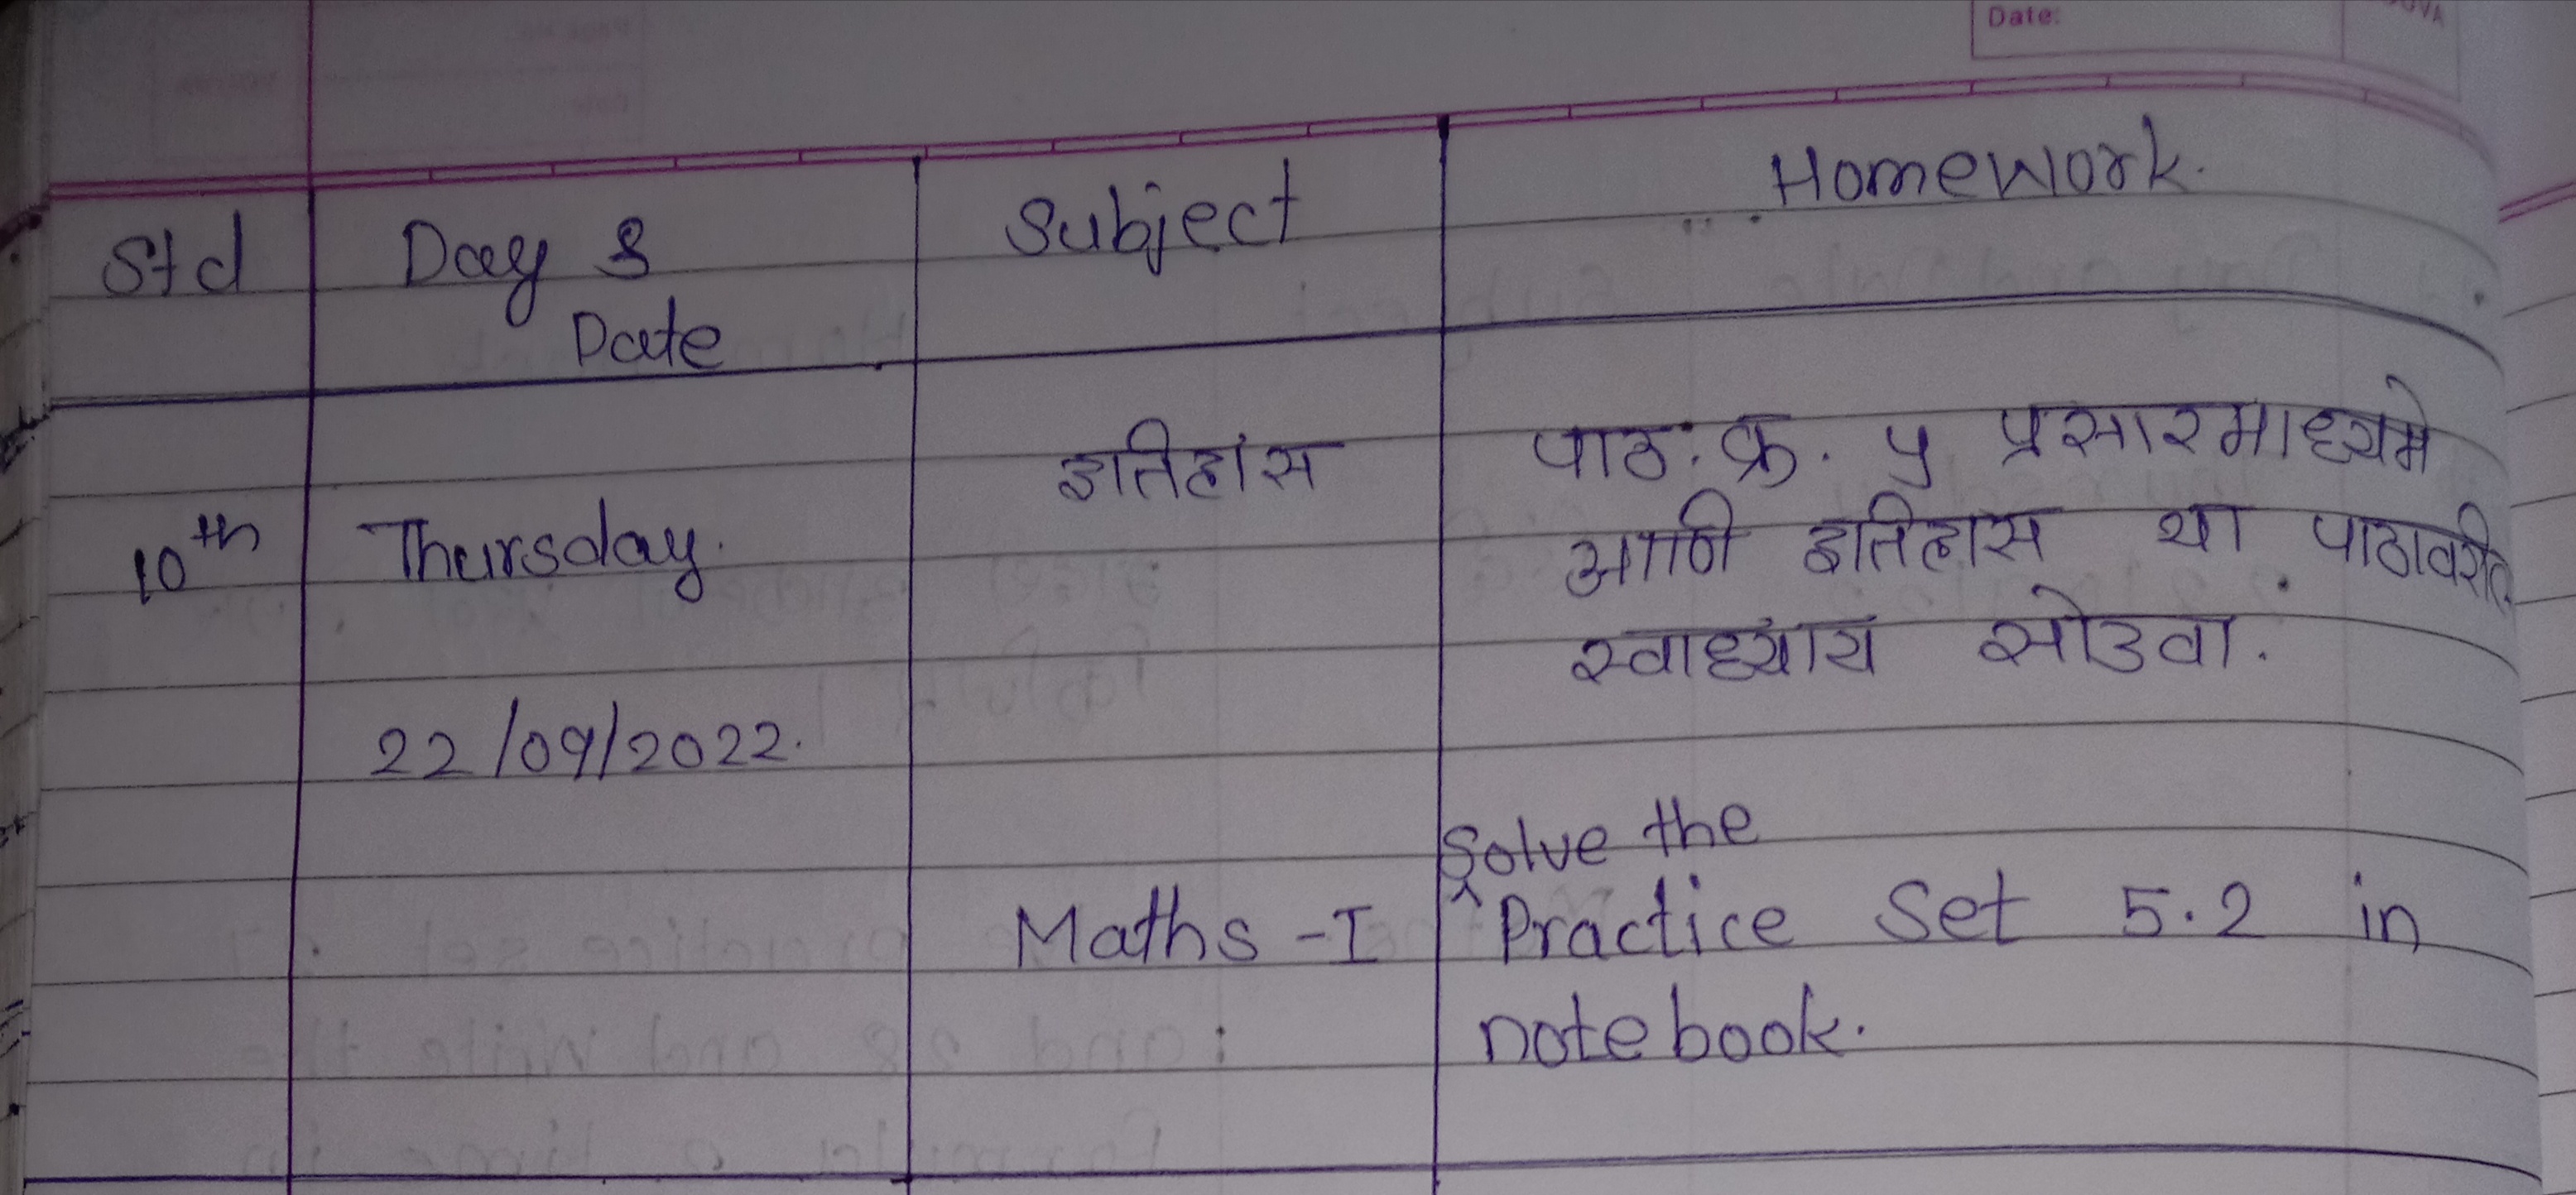 Date:
Std Day & Subject Homework.
Date
इतिहास पाठ. क्र. ५ प्रसारमाध्यमे
10th Thursday. आणि इतिहास या पाठावरील
स्वाध्याय सोडवा.
22/09/2022.
Solve the
Maths - I Practice Set 5.2 in
notebook.